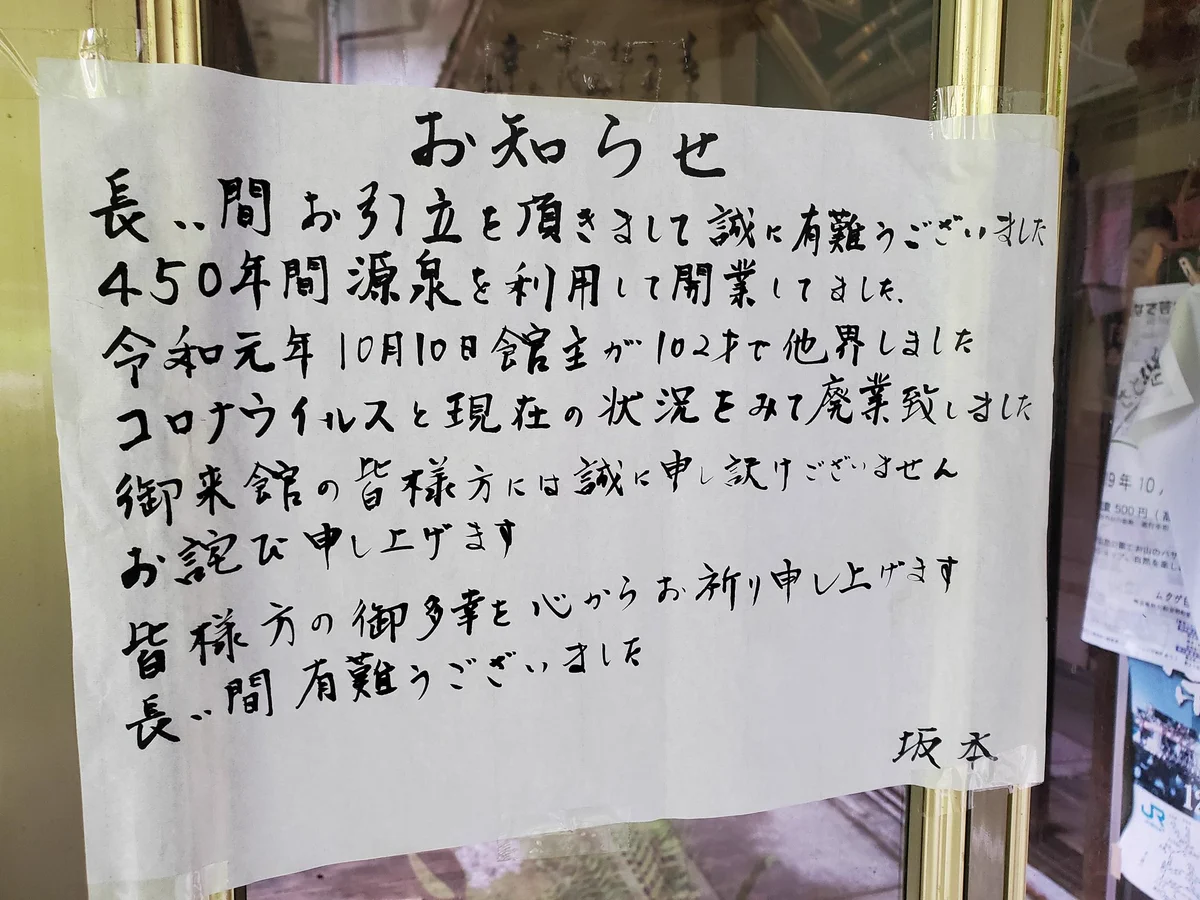 お知らせ
長い間お引立を頂きまして誠に有難うございました
450年間源泉を利用して開業してました.
令和元年10月10日館主が102才で他界しました
コロナウイルスと現在の状況をみて廃業致しました
御来館の皆様方には誠に申し訳けございません
お詫び申し上げます
皆様方の御多幸を心からお祈り申し上げます
長い間有難うございました
坂本
9年10,
500円
JR